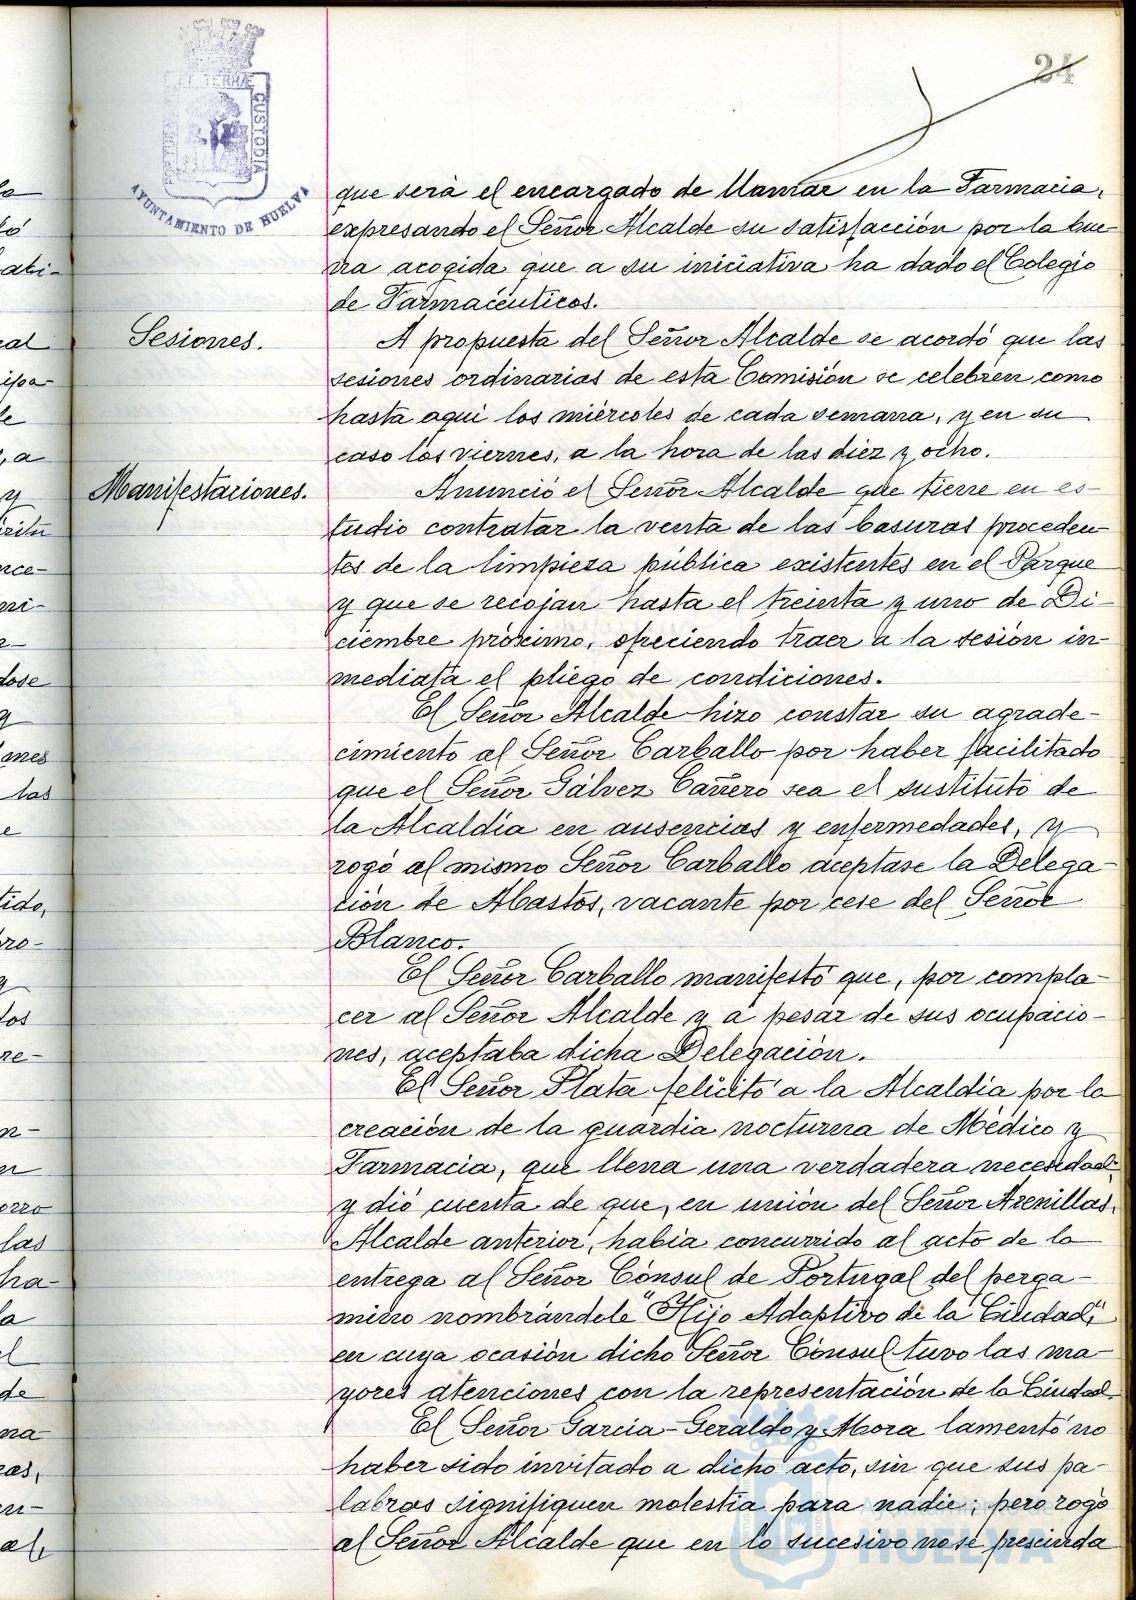 24
ET TERRÆ
CUSTODIA
AYUNTAMIENTO DE HUELVA
que será el encargado de llamar en la Farmacia,
expresando el Señor Alcalde su satisfacción por la bue
na acogida que a su iniciativa ha dado el Colegio
de Farmacéuticos.
Sesiones.
A propuesta del Señor Alcalde se acordó que las
sesiones ordinarias de esta Comisión se celebren como
hasta aquí los miércoles de cada semana, y en su
caso los viernes, a la hora de las diez y ocho.
Manifestaciones.
Anunció el Señor Alcalde que tiene en es-
tudio contratar la venta de las basuras proceden
tes de la limpieza pública existentes en el Parque
y que se recojan hasta el treinta y uno de Di-
ciembre próximo, ofreciendo traer a la sesión in-
mediata el pliego de condiciones.
El Señor Alcalde hizo constar su agrade-
cimiento al Señor Carballo por haber facilitado
que el Señor Gálvez Cañero sea el sustituto de
la Alcaldía en ausencias y enfermedades, y
rogó al mismo Señor Carballo aceptase la Delega-
ción de Abastos, vacante por cese del Señor
Blanco.
El Señor Carballo manifestó que, por compla-
cer al Señor Alcalde y a pesar de sus ocupacio-
nes, aceptaba dicha Delegación.
El Señor Plata felicitó a la Alcaldía por la
creación de la guardia nocturna de Médico y
Farmacia, que llena una verdadera necesidad,
y dió cuenta de que, en unión del Señor Arenillas,
Alcalde anterior, había concurrido al acto de la
entrega al Señor Cónsul de Portugal del perga-
mino nombrándole "Hijo Adoptivo de la Ciudad",
en cuya ocasión dicho Señor Cónsul tuvo las ma-
yores atenciones con la representación de la Ciudad.
El Señor García-Geraldo y Mora lamentó no
haber sido invitado a dicho acto, sin que sus pa-
labras signifiquen molestia para nadie; pero rogó
al Señor Alcalde que en lo sucesivo no se prescinda
Ayuntamiento de
HUELVA